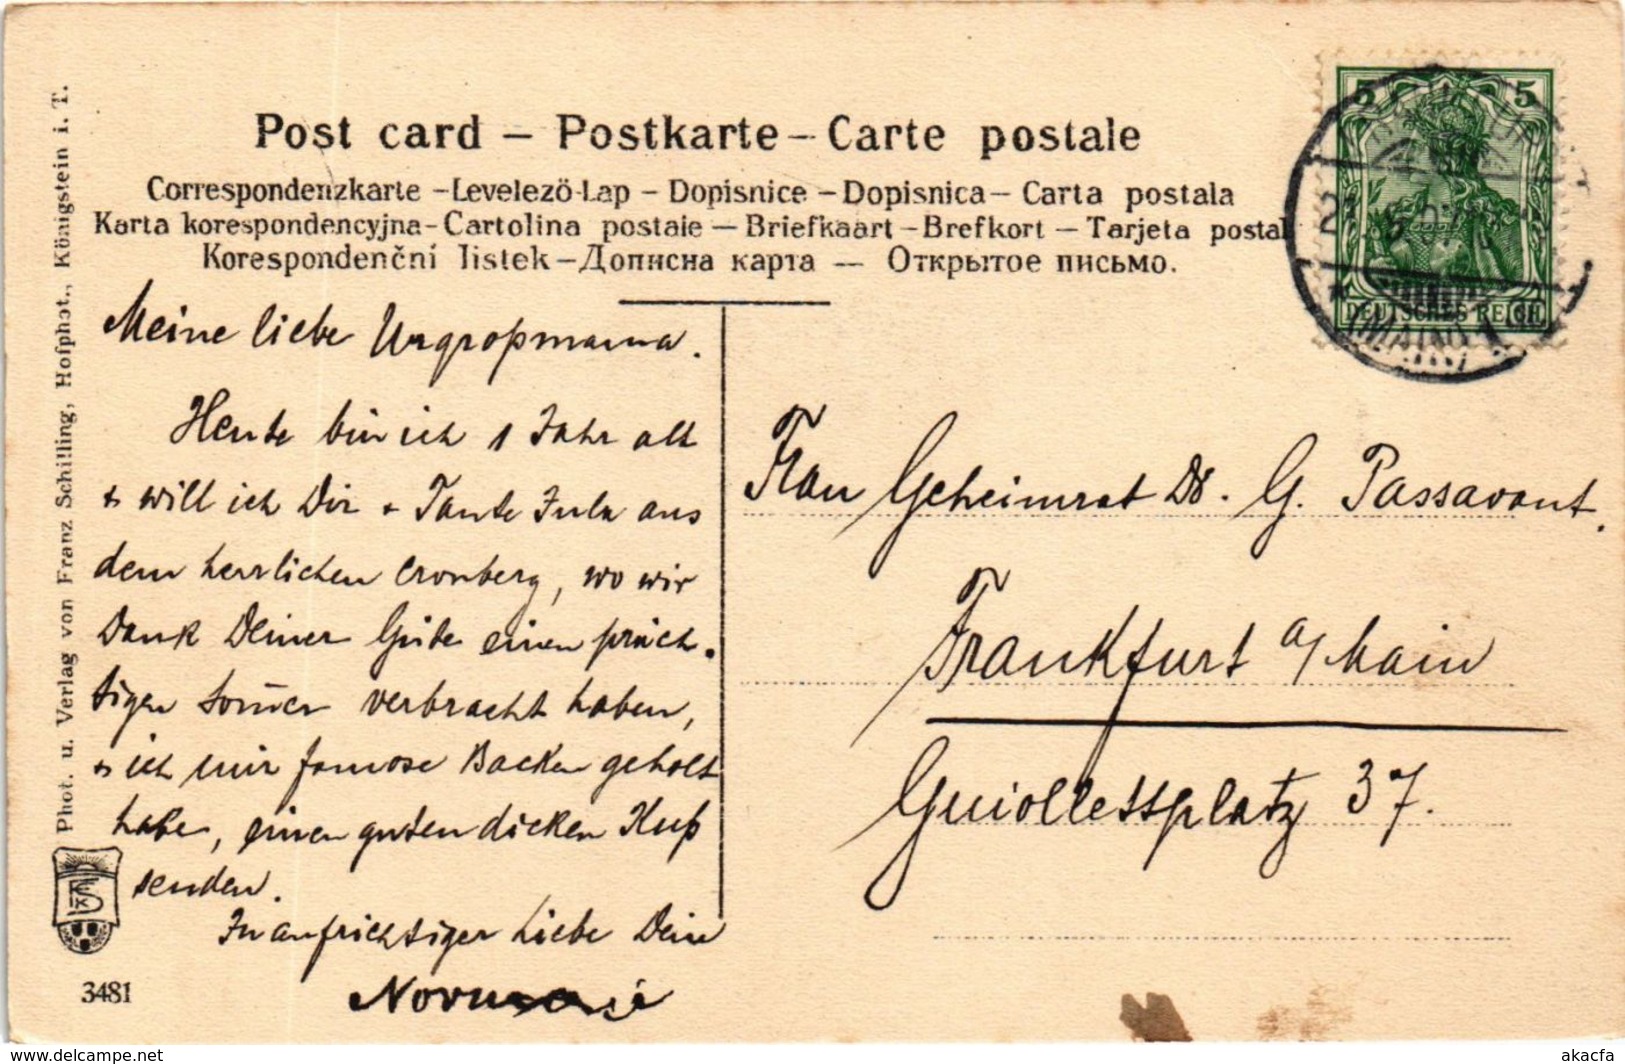 Post card – Postkarte – Carte postale
Correspondenzkarte – Levelező-Lap – Dopisnice – Dopisnica – Carta postala
Karta korespondencyjna – Cartolina postale – Briefkaart – Brefkort – Tarjeta postal
Korespondenční lístek – Дописна карта — Открытое письмо.
Meine liebe Urgroßmama.
Heute bin ich 1 Jahr alt
+ will ich Dir + Tante Jula aus
dem herrlichen Cronberg, wo wir
Dank Deiner Güte einen präch-
tigen Som̄er verbracht haben,
+ ich mir famose Backen geholt
habe, einen guten dicken Kuß
senden.
In aufrichtiger Liebe Dein
Frau Geheimrat Dr. G. Passavant.
Frankfurt a/Main
Guiollettplatz 37.
5 5
DEUTSCHES REICH
(MAIN) 1
Phot. u. Verlag von Franz Schilling, Hofphot., Königstein i. T.
3481
www.delcampe.net
akacfa